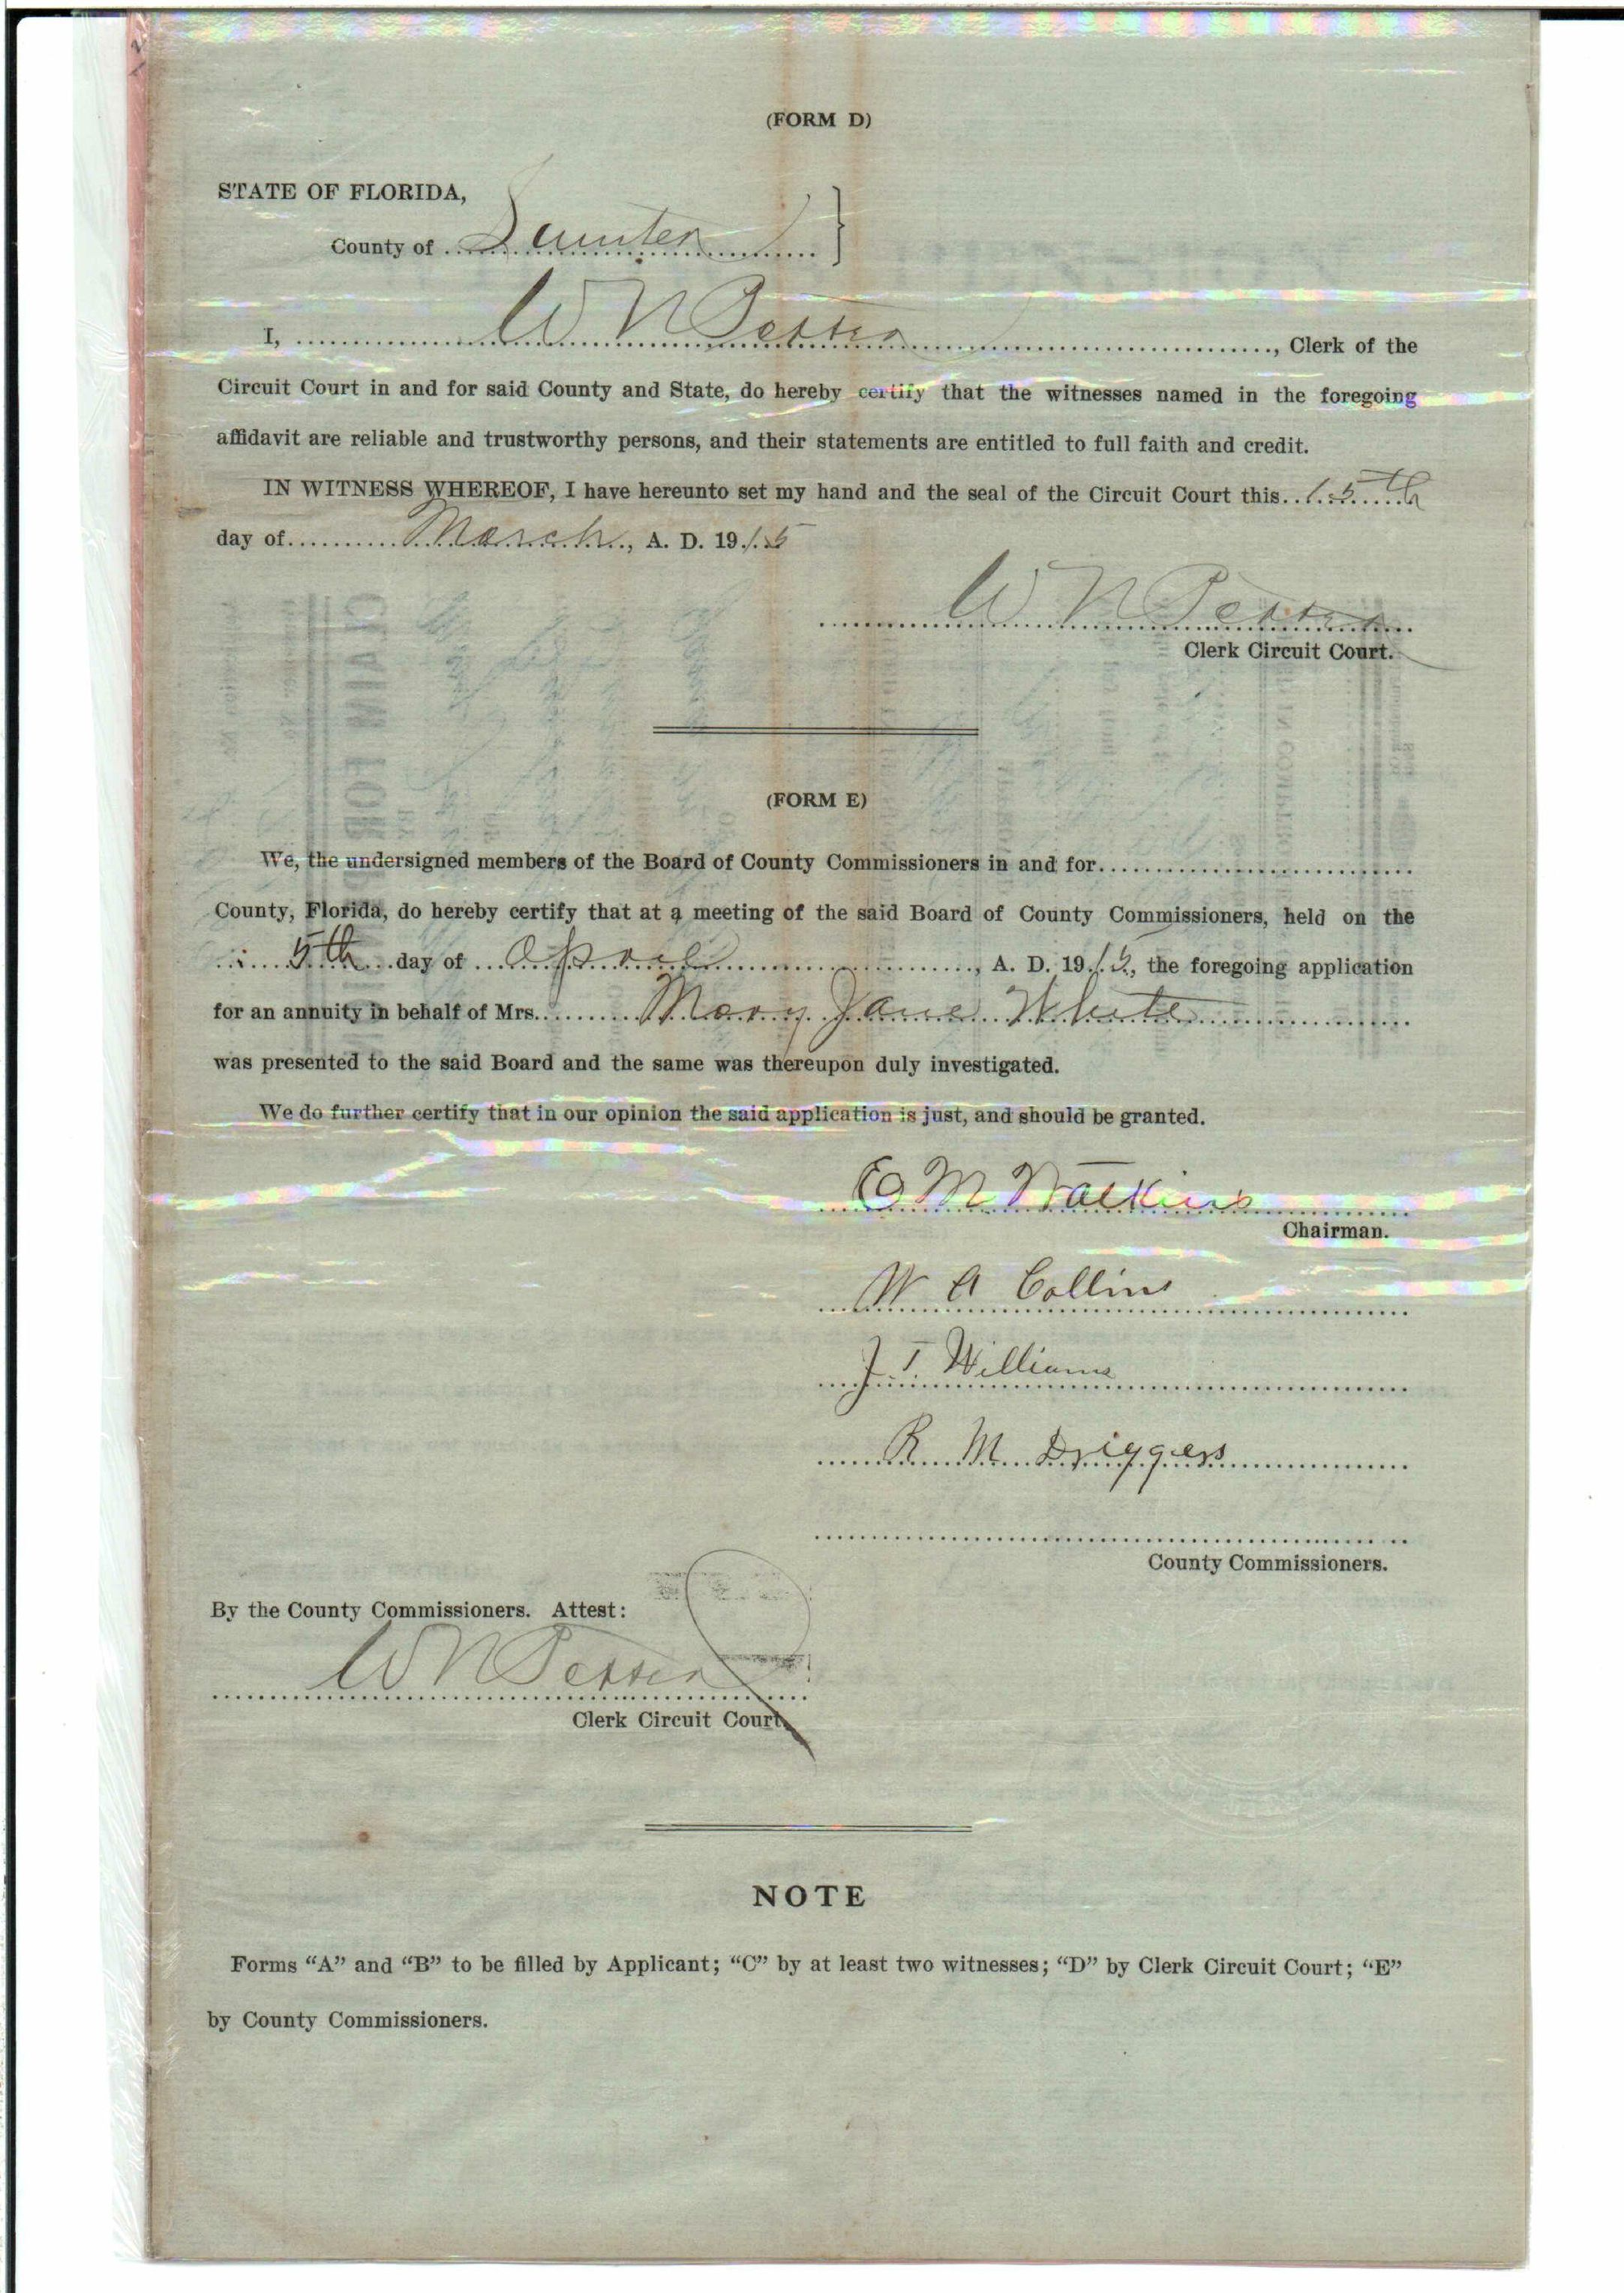 (FORM D)
STATE OF FLORIDA,
County of Sumter }
I, W N Potter, Clerk of the
Circuit Court in and for said County and State, do hereby certify that the witnesses named in the foregoing
affidavit are reliable and trustworthy persons, and their statements are entitled to full faith and credit.
IN WITNESS WHEREOF, I have hereunto set my hand and the seal of the Circuit Court this 15th
day of March, A. D. 1915
W N Potter
Clerk Circuit Court.
(FORM E)
We, the undersigned members of the Board of County Commissioners in and for
County, Florida, do hereby certify that at a meeting of the said Board of County Commissioners, held on the
5th day of April, A. D. 1915, the foregoing application
for an annuity in behalf of Mrs. Mary Jane White
was presented to the said Board and the same was thereupon duly investigated.
We do further certify that in our opinion the said application is just, and should be granted.
E M Watkins
Chairman.
W A Collins
J. T. Williams
R. M. Driggers
County Commissioners.
By the County Commissioners. Attest:
W N Potter
Clerk Circuit Court.
NOTE
Forms “A” and “B” to be filled by Applicant; “C” by at least two witnesses; “D” by Clerk Circuit Court; “E”
by County Commissioners.